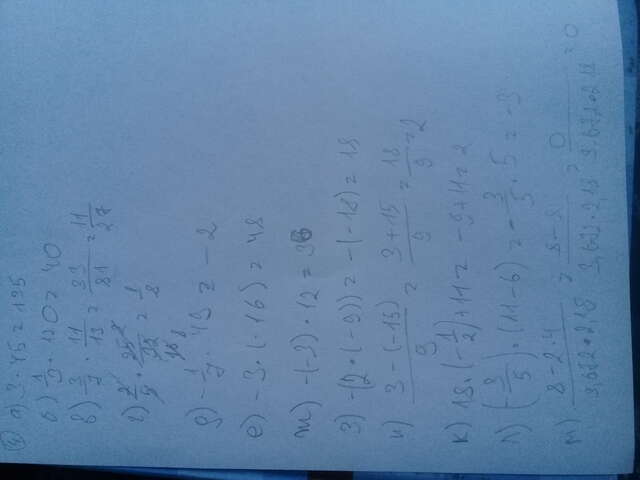 4) а) 3 · 45 = 135
б) 1/3 · 120 = 40
в) 3/7 · 11/13 = 33/81 = 11/27
г) 2/5 · 25/32 = 1/8
д) -1/7 · 49 = -2
е) -3 · (-16) = 48
ж) -(-3) · 12 = 36
з) -(2 · (-9)) = -(-18) = 18
и) 3-(-15)/9 = 3+15/9 = 18/9 = 2
к) 18 · (-1/2) + 11 = -9 + 11 = 2
л) (-3/5) · (11-6) = -3/5 · 5 = -3
м) 8-2·4/3,672·2,18 = 8-8/3,672·2,18 = 0/3,672·2,18 = 0